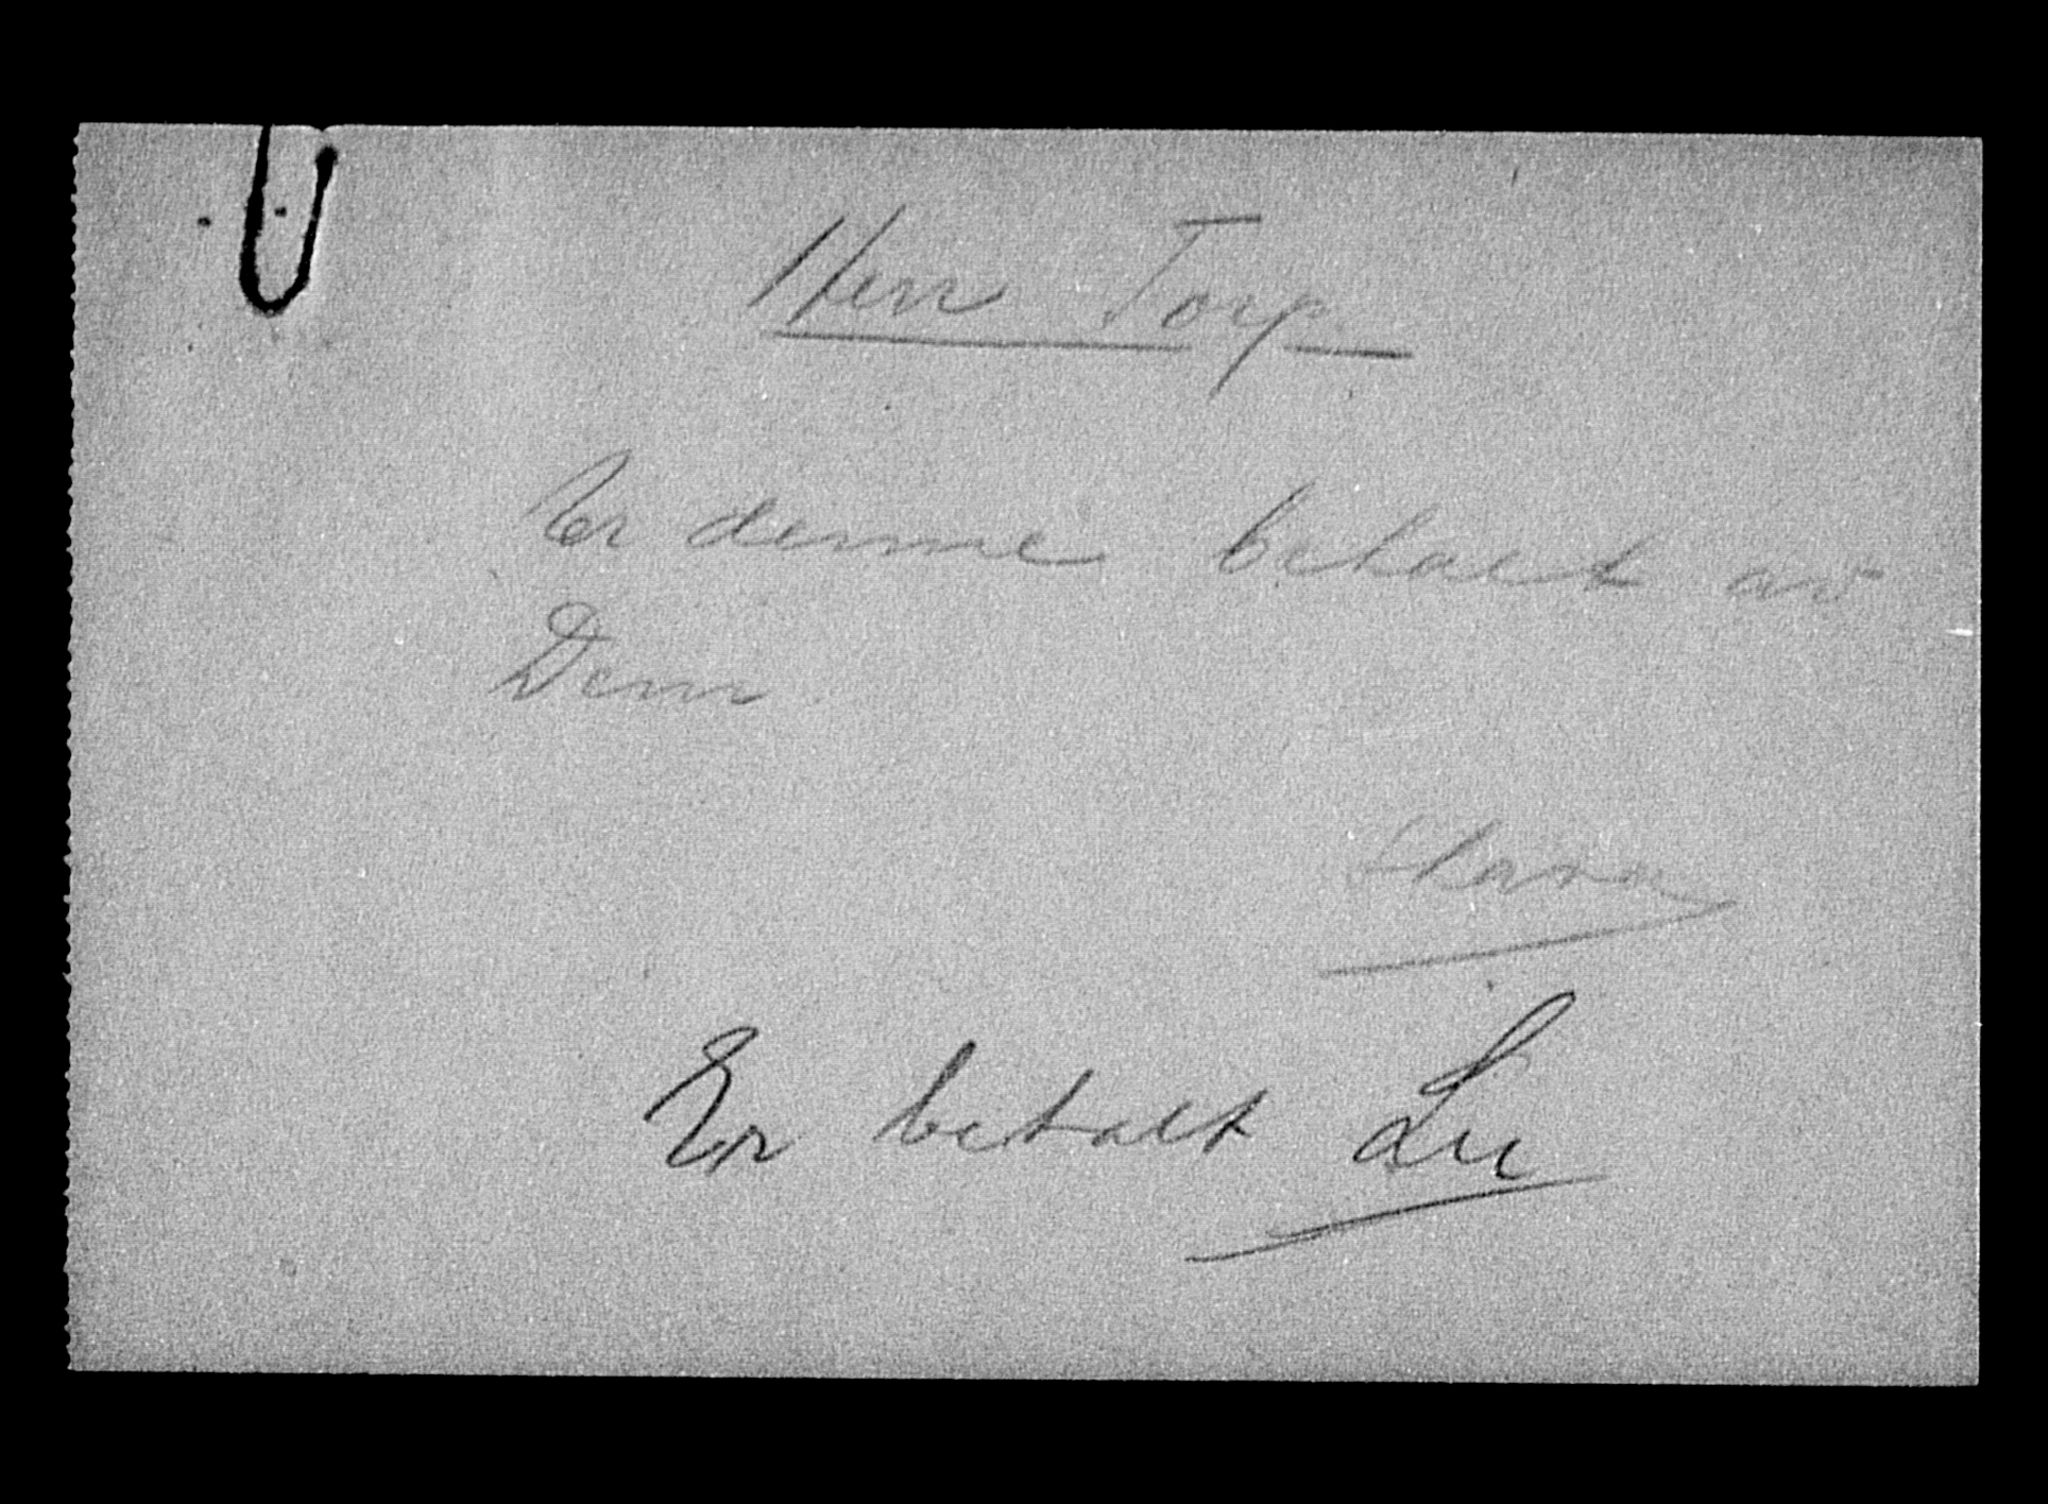 Herr Torp.
Er denne betalt av
Dem
Er betalt